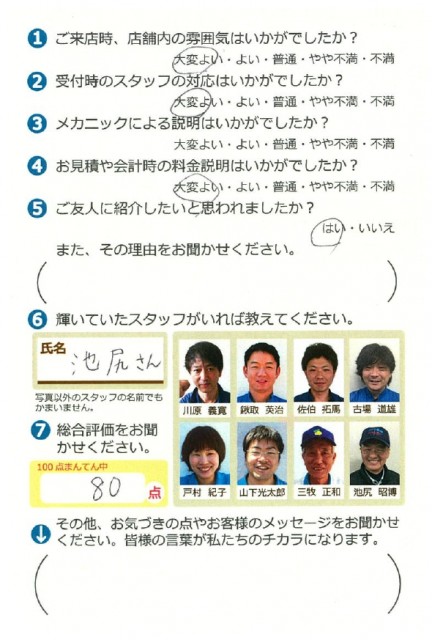 1 ご来店時、店舗内の雰囲気はいかがでしたか？
大変よい・よい・普通・やや不満・不満
2 受付時のスタッフの対応はいかがでしたか？
大変よい・よい・普通・やや不満・不満
3 メカニックによる説明はいかがでしたか？
大変よい・よい・普通・やや不満・不満
4 お見積や会計時の料金説明はいかがでしたか？
大変よい・よい・普通・やや不満・不満
5 ご友人に紹介したいと思われましたか？
はい・いいえ
また、その理由をお聞かせください。
6 輝いていたスタッフがいれば教えてください。
氏名
池尻さん
写真以外のスタッフの名前でも
かまいません。
川原 義寛 鍬取 英治 佐伯 拓馬 古場 道雄
戸村 紀子 山下光太郎 三牧 正和 池尻 昭博
7 総合評価をお聞
かせください。
100点まんてん中
80 点
その他、お気づきの点やお客様のメッセージをお聞かせ
ください。皆様の言葉が私たちのチカラになります。